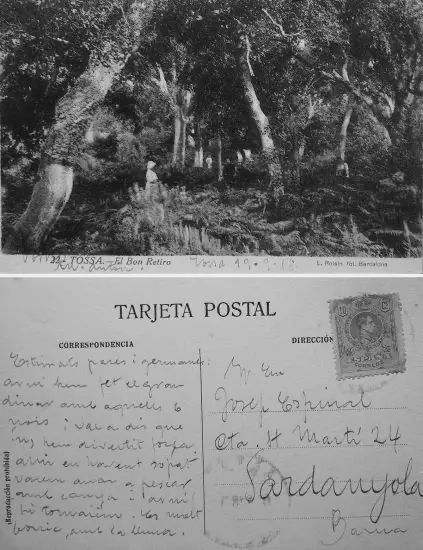 22 - TOSSA. - El Bon Retiro
Tossa 19-9-13
L. Roisin, fot. Barcelona
TARJETA POSTAL
CORRESPONDENCIA
DIRECCIÓN
(Reproducción prohibida)
Estimats pares i germanes:
avui hem fet el gran
dinar amb aquells 6
nois i val a dir que
ens hem divertit força
ahir en havent sopat
varem anar a pescar
amb canya i avui
hi tornarem. Es molt
bonic, amb la lluna.
Josep Espinal
Cta. St Martí 24
Sardanyola
Barna